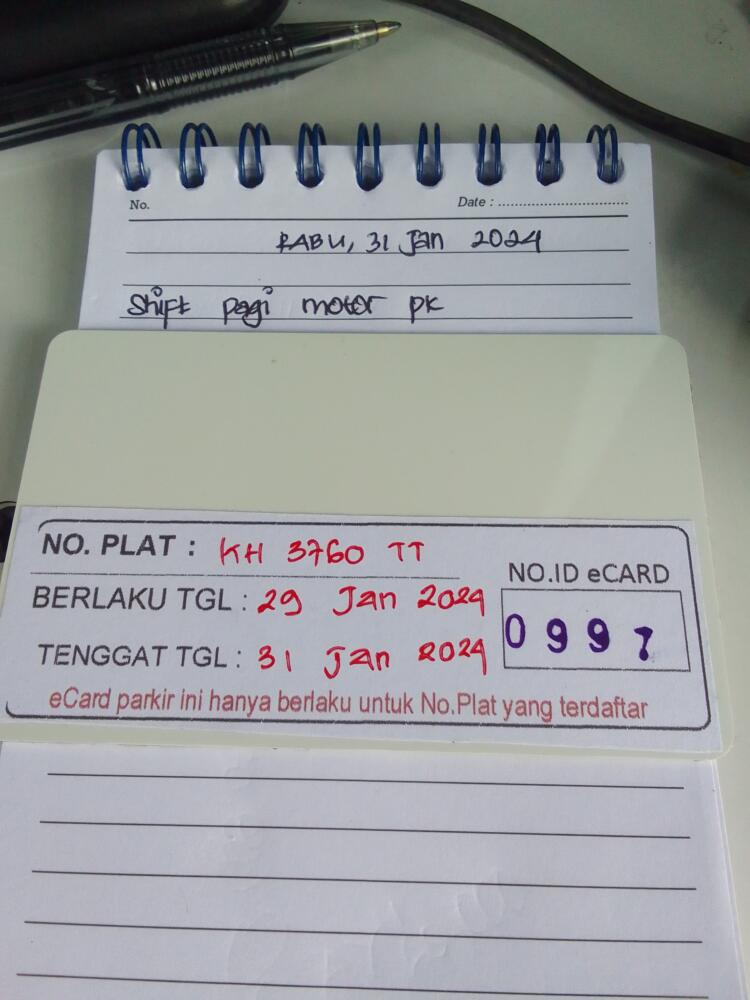 No.
Date : ................................
RABU, 31 Jan 2024
Shift pagi motor pk
NO. PLAT : KH 3760 TT
BERLAKU TGL : 29 Jan 2024
TENGGAT TGL : 31 Jan 2024
NO.ID eCARD
0997
eCard parkir ini hanya berlaku untuk No.Plat yang terdaftar